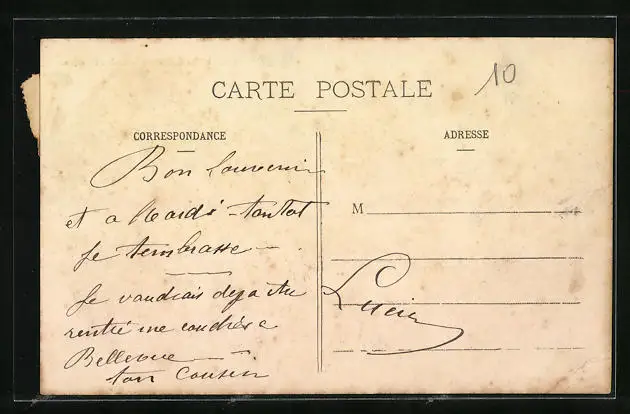 10
CARTE POSTALE
CORRESPONDANCE
Bon Souvenir
et a Mardi - tantot
Je tembrasse -
Je voudrais deja être
rentré me a
Bellevue
ton Cousin
ADRESSE
M
Lucien